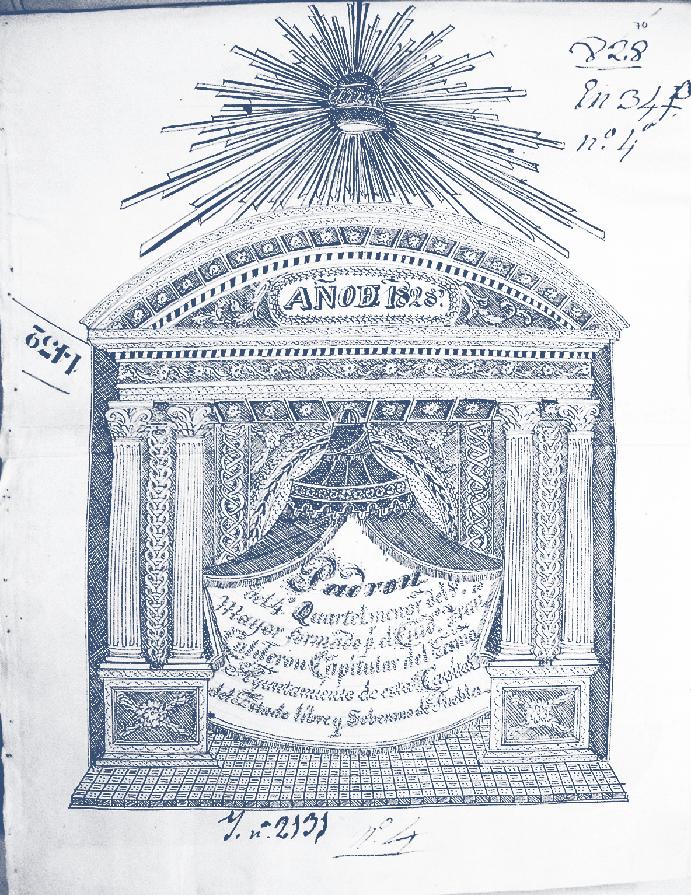 70
828
En 34 f.
nº. 4º
AÑO DE 1828.
1432
Padron
del 4º Quartel menor del
Mayor formado p. el Ciud.
Calderon Capitular del
Ayuntamiento de esta Capital
del Estado libre y Soberano de Puebla.
Y. nº. 2131
nº. 4